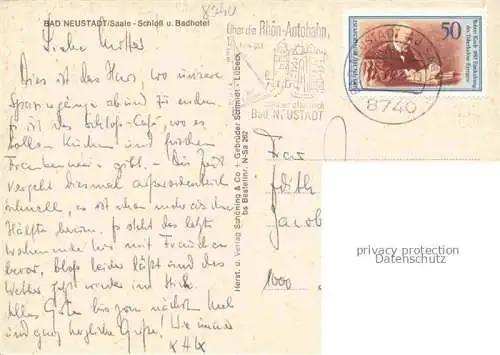 8740
BAD NEUSTADT/Saale - Schloß u. Badhotel
Liebe
Dies ist das Haus, wo unsere
Spaziergänge ab und zu enden.
ist das Schloß-Café, wo es
tollen Kuchen und frischen
Frankenwein gibt. - Die Zeit
vergeht diesmal außerordentlich
schnell, es ist schon mehr als die
Hälfte herum. steht das letzte
Wochenende hier mit
bevor, bloß leider läßt uns das
Wetter jetzt wieder im Stich.
Alles Gute bis zum nächsten Mal
und ganz herzliche Grüße! Wie immer
Herst. u. Verlag Schöning & Co + Gebrüder Schmidt - Lübeck
bs Bestellnr. N-Sa 262
Über die Rhön-Autobahn,
Bad NEUSTADT
50
Robert Koch 1982 Entdeckung
des Tuberkulose-Erregers
DEUTSCHE BUNDESPOST
8740
Frau
Edith
Jacob
1000
privacy protection
Datenschutz